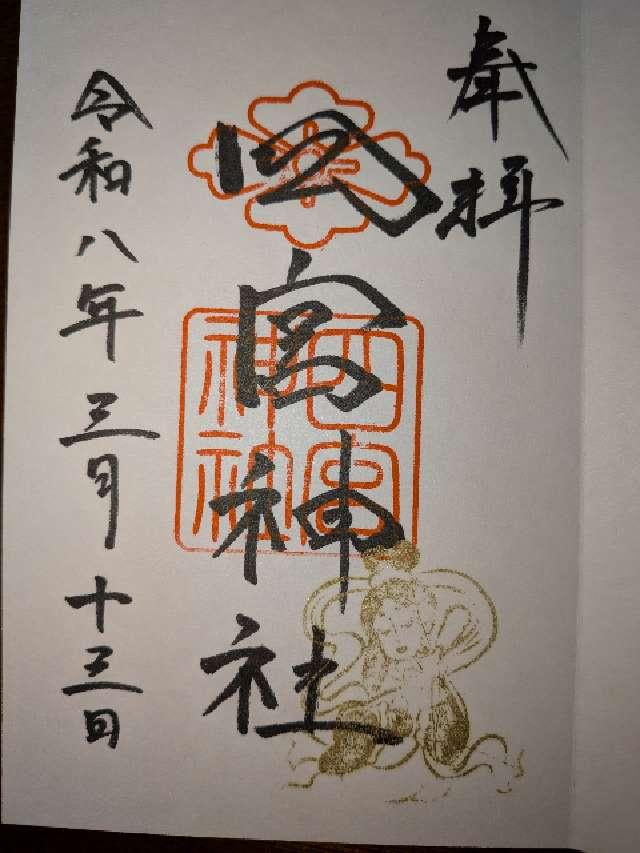 奉拝
四宮神社
四宮
神社
令和八年三月十三日